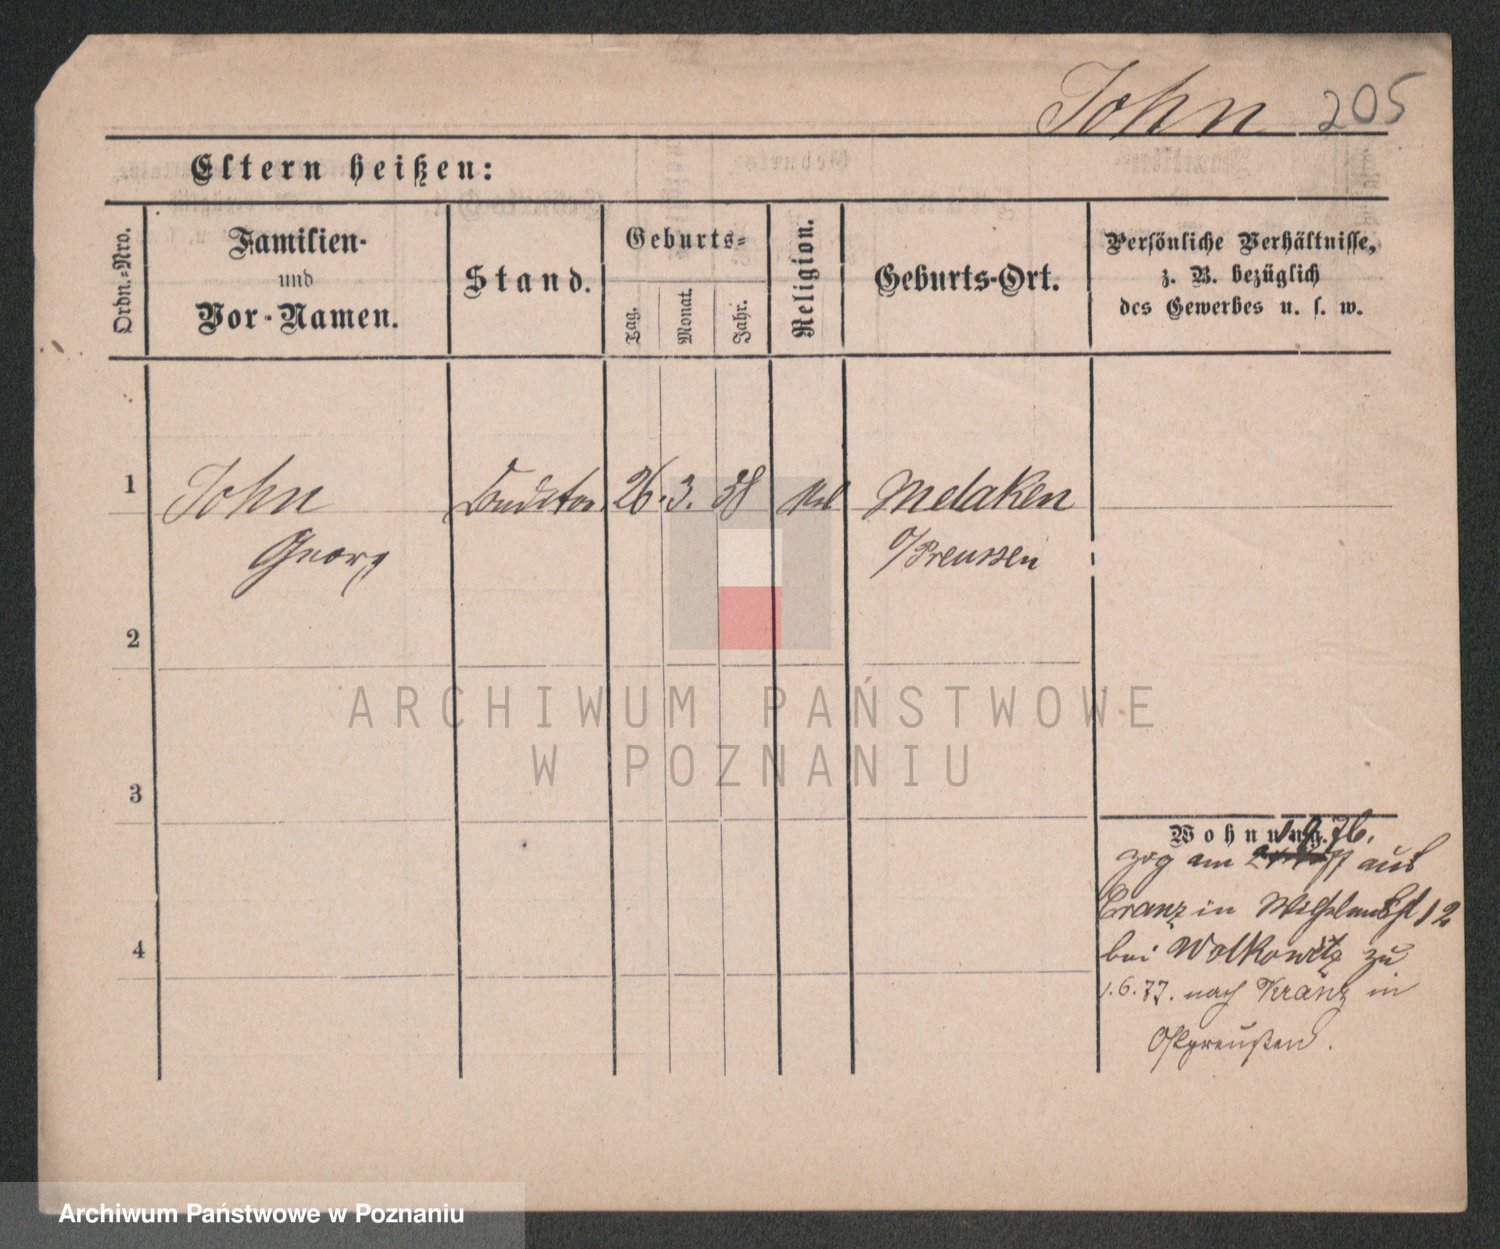 John 205
Eltern heißen:
Ordn.-Nro.
Familien-
und
Vor-Namen.
Stand.
Geburts-
Tag.
Monat.
Jahr.
Religion.
Geburts-Ort.
Persönliche Verhältnisse,
z. B. bezüglich
des Gewerbes u. s. w.
1
John
Georg
26. 3. 38
Melaken
O/Preussen
2
3
4
ARCHIWUM PAŃSTWOWE
W POZNANIU
Wohnung.
76.
zog am aus
Cranz in 12
bei Wolkowitz zu
1.6.77. nach Kranz in
Ostpreußen.
Archiwum Państwowe w Poznaniu